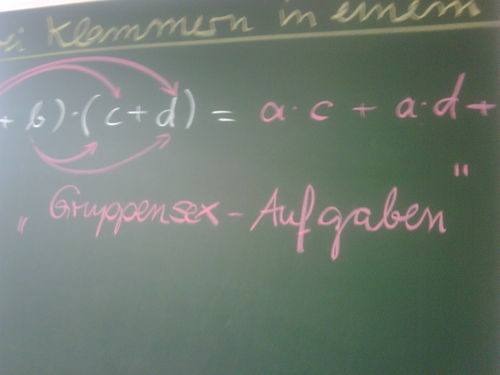 ei Klammern in einem
+ b) · (c + d) = a · c + a · d +
„Gruppensex - Aufgaben"